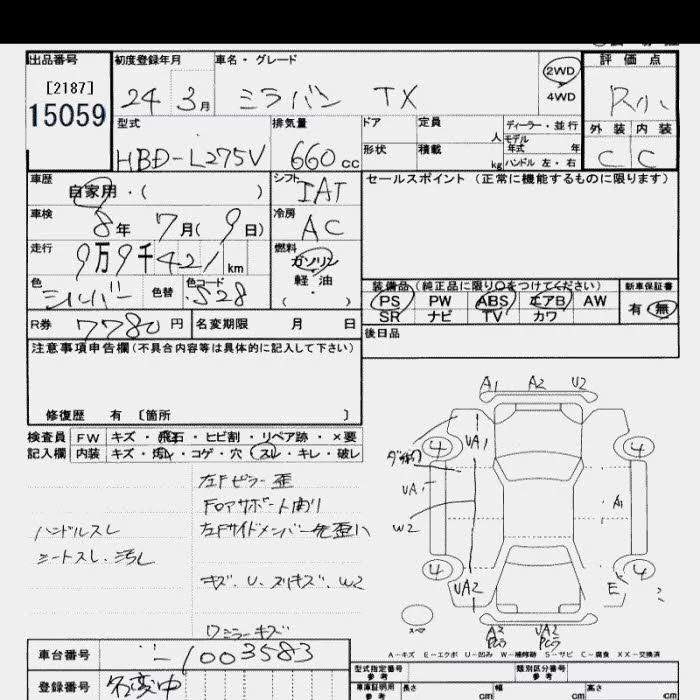 出品番号 初度登録年月 車名・グレード 評価点
[2187]
15059
24 3月 ミラバン TX 2WD 4WD R小
型式 排気量 ドア 定員 人 ディーラー・並行 外装 内装
モデル年式 年
HBD-L275V 660cc 形状 積載 kg ハンドル 左・右 C C
車歴 自家用・( ) シフト IAT セールスポイント (正常に機能するものに限ります)
車検 8年 7月(9日) 冷房 AC
走行 9万9千421km 燃料 ガソリン 軽油 ・ ( )
色 シルバー 色替 色コード S28 装備品(純正品に限り〇をつけてください) 新車保証書
PS PW ABS エアB AW 有・無
SR ナビ TV カワ
R券 7780円 名変期限 月 日 後日品
注意事項申告欄(不具合内容等は具体的に記入して下さい)
修復歴 有 〔箇所 〕
検査員 FW キズ・飛石・ヒビ割・リペア跡・×要
記入欄 内装 キズ・汚れ・コゲ・穴・スレ・キレ・破レ
左Fピラー歪
Fロアサポート曲り
ハンドルスレ 左Fサイドメンバー先歪小
シートスレ・汚レ
キズ、U、スリキズ、W2
ワミラーキズ
A1 A2 U2
4 UA1 4
UA
W2 A1
4 UA2 E 4
スペア A2 UA2
A-キズ E-エクボ U-凹み W-補修跡 S-サビ C-腐食 XX-交換済
車台番号 1003583
登録番号 名変中
型式指定番号 参考 類別区分番号 参考
車庫証明用 参考 長さ cm 幅 cm 高さ cm